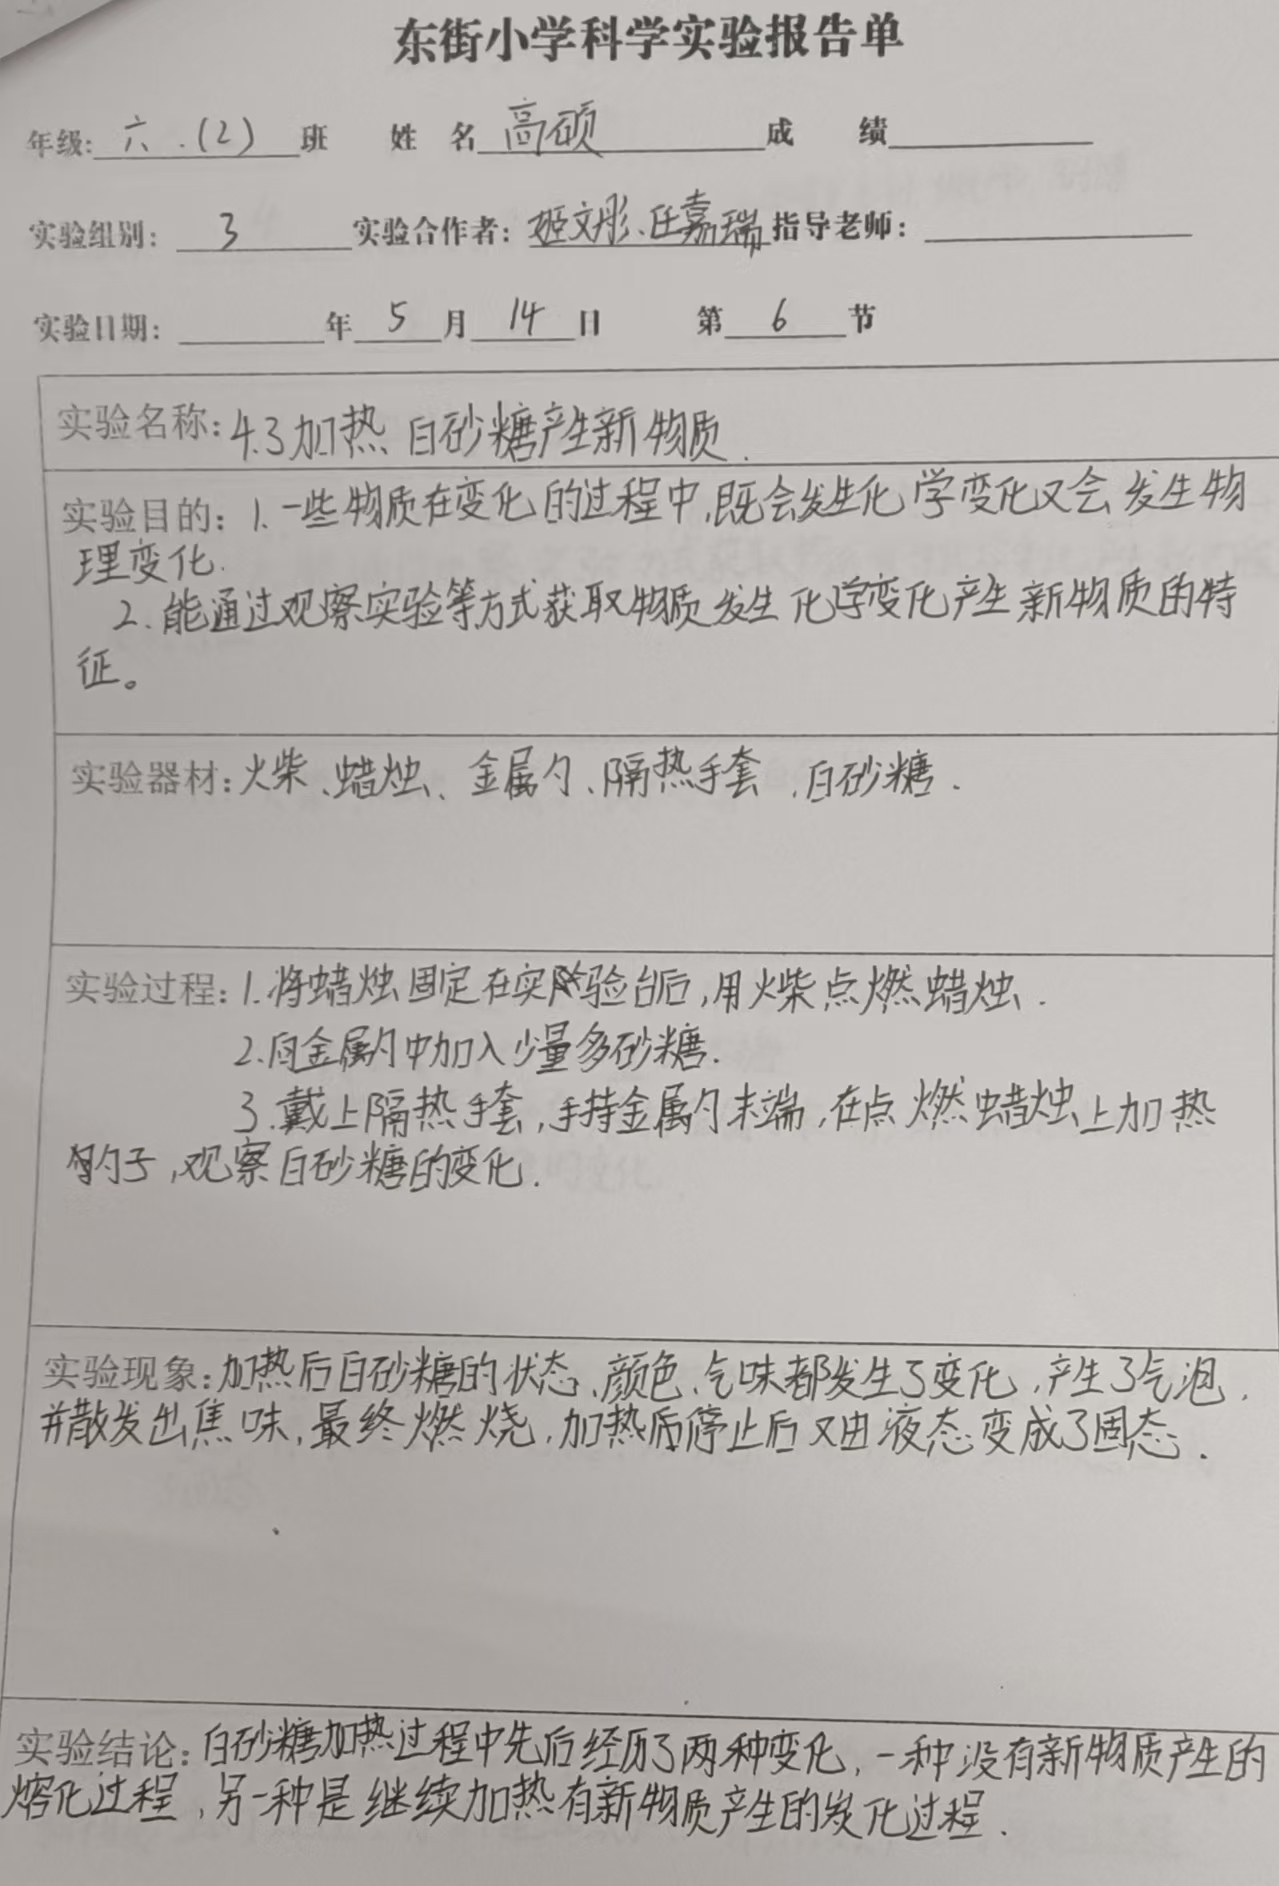 东街小学科学实验报告单
年级: 六.(2) 班 姓 名 高硕 成 绩
实验组别: 3 实验合作者: 姬文彤、任嘉瑞 指导老师:
实验日期: 年 5 月 14 日 第 6 节
实验名称: 4.3加热白砂糖产生新物质.
实验目的: 1.一些物质在变化的过程中,既会发生化学变化又会发生物
理变化.
2.能通过观察实验等方式获取物质发生化学变化产生新物质的特
征。
实验器材: 火柴、蜡烛、金属勺、隔热手套、白砂糖.
实验过程: 1.将蜡烛固定在实验台后,用火柴点燃蜡烛.
2.向金属勺中加入少量多砂糖.
3.戴上隔热手套,手持金属勺末端,在点燃蜡烛上加热
勺子,观察白砂糖的变化.
实验现象: 加热后白砂糖的状态、颜色、气味都发生了变化,产生了气泡,
并散发出焦味,最终燃烧,加热后停止后又由液态变成了固态.
实验结论: 白砂糖加热过程中先后经历了两种变化,一种没有新物质产生的
熔化过程,另一种是继续加热有新物质产生的炭化过程.